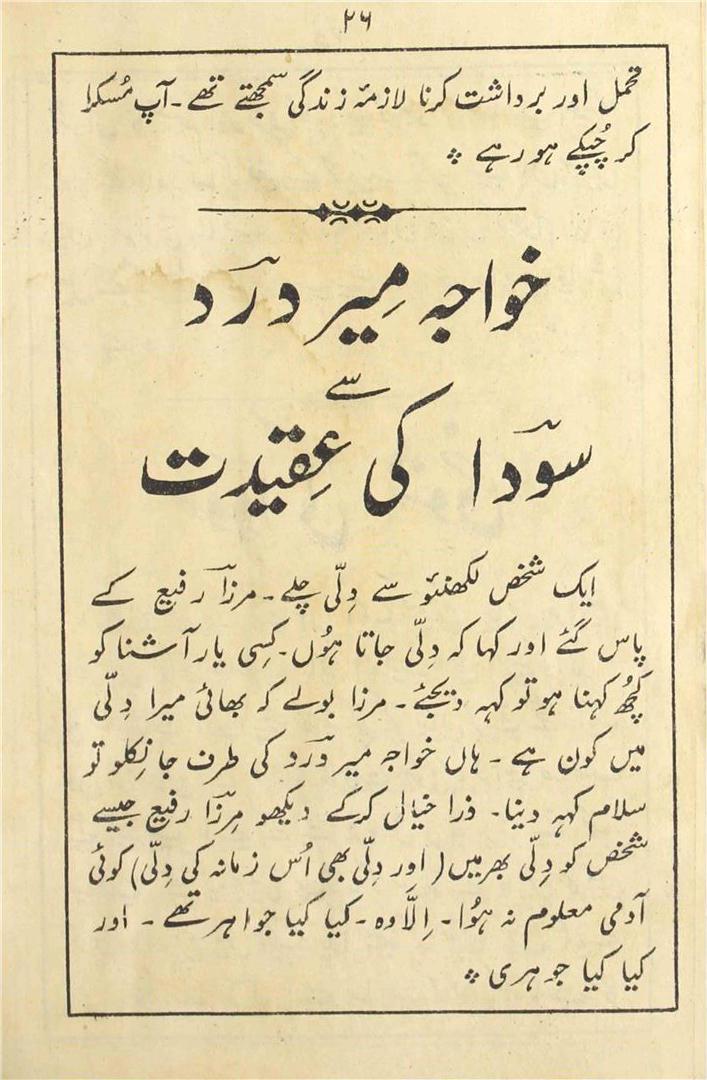 ۲۶
تحمل اور برداشت کرنا لازمۂ زندگی سمجھتے تھے۔ آپ مُسکرا
کر چُپکے ہو رہے ؞
خواجہ مِیر دردؔ
سے
سوداؔ کی عِقیدت
ایک شخص لکھنئو سے دِلّی چلے۔ مرزاؔ رفیع کے
پاس گئے اور کہا کہ دِلّی جاتا ہُوں۔ کسِی یار آشنا کو
کچُھ کہنا ہو تو کہہ دیجئے۔ مرزا بولے کہ بھائی میرا دِلّی
میں کون ہے۔ ہاں خواجہ میر دردؔ کی طرف جا نِکلو تو
سلام کہہ دینا۔ ذرا خیال کرکے دیکھو مِرزاؔ رفیع جیسے
شخص کو دِلّی بھر میں (اور دِلّی بھی اُس زمانہ کی دِلّی) کوئی
آدمی معلوم نہ ہُوا۔ اِلاَّ وہ۔ کیا کیا جواہر تھے۔ اور
کیا کیا جوہری ؞